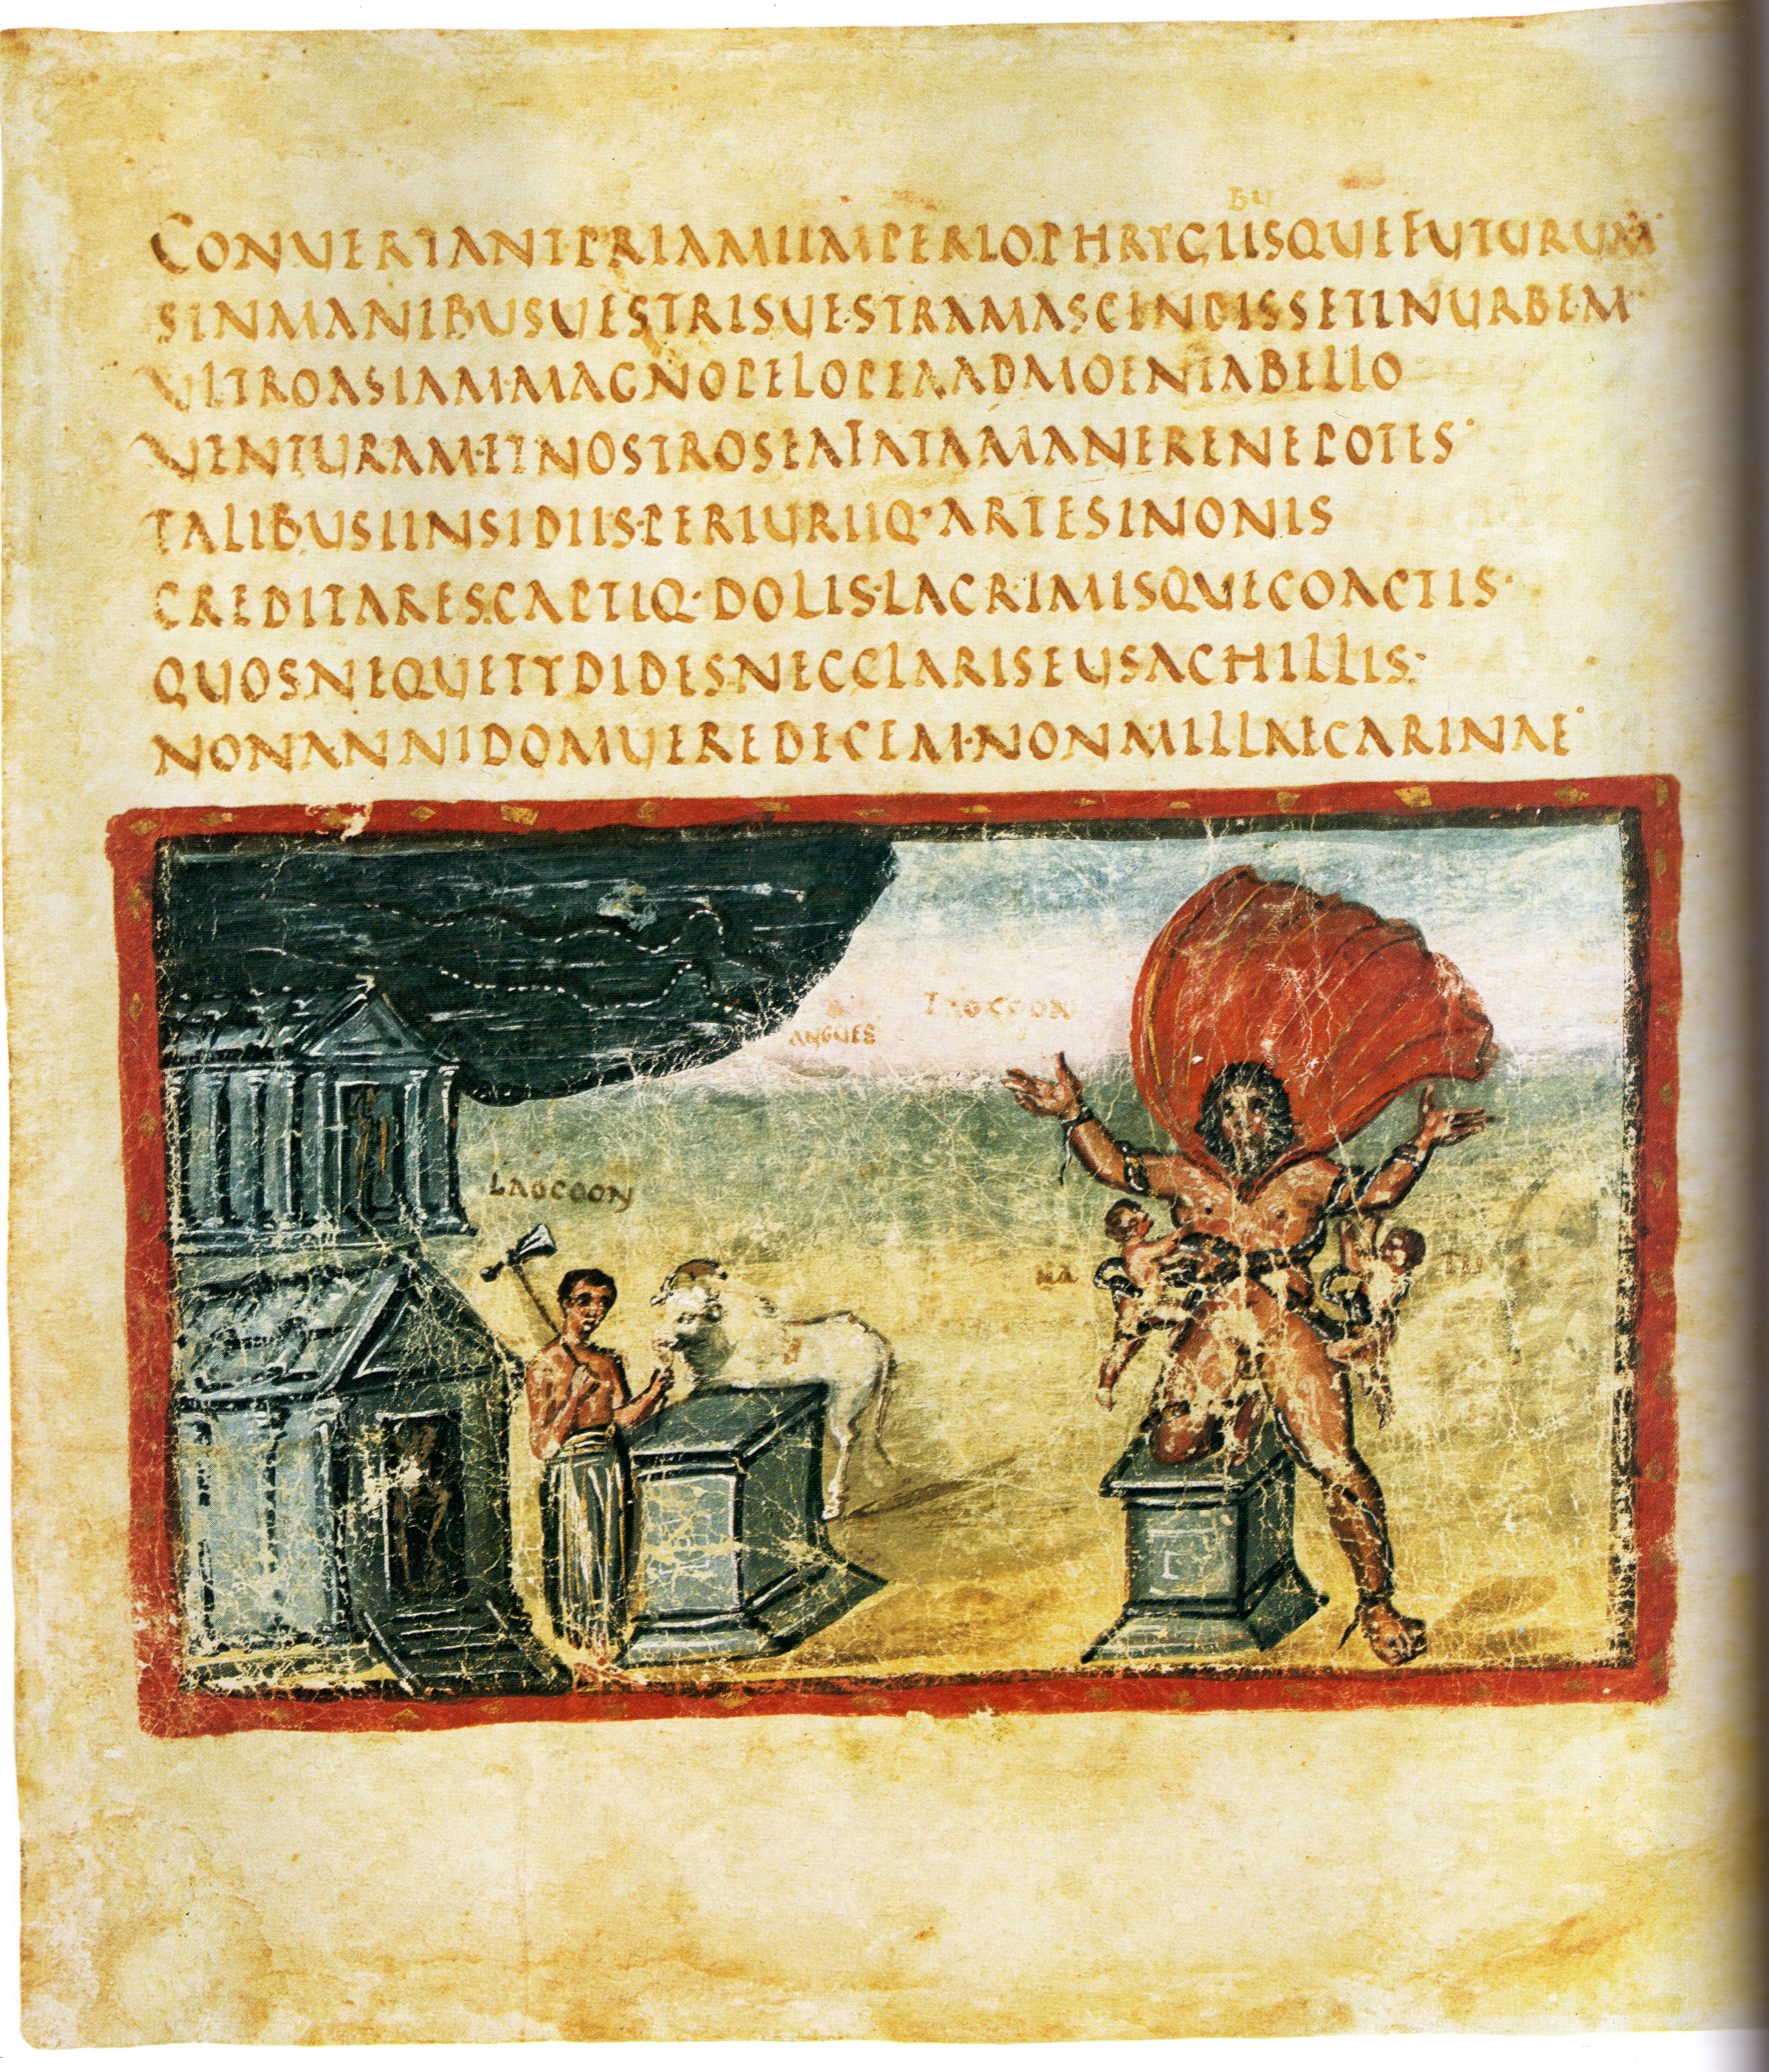 CONUERTANT·PRIAMIIMPERIO·PHRYGIISQUEFUTURUM
SINMANIBUSUESTRISUESTRAMASCENDISSETINURBEM
ULTROASIAM·MAGNOPELOPEAADMOENIABELLO
UENTURAM·ETNOSTROSEAFATAMANERENEPOTES
TALIBUSIINSIDIIS·PERIURIIQ·ARTESINONIS
CREDITARES·CAPTIQ·DOLIS·LACRIMISQUECOACTIS
QUOSNEQUETYDIDESNECCLARISEUSACHILLIS
NONANNIDOMUEREDECEM·NONMILLAECARINAE
LAOCOON
ANGUES
LAOCOON
NA